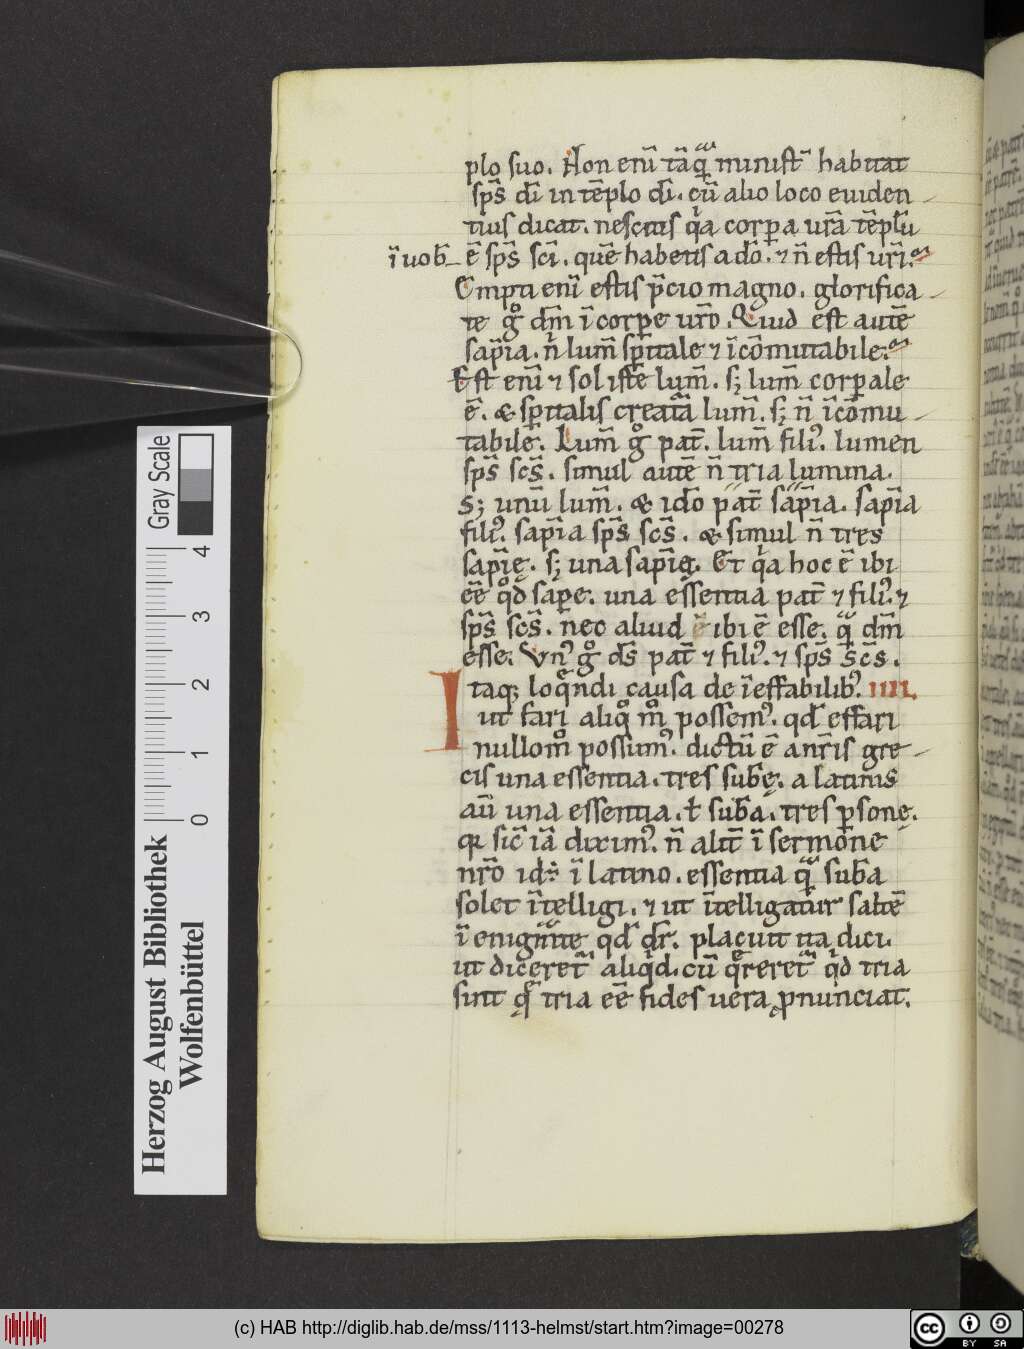 plo suo. Non eni̅ ta̅q̅ minist̅ habitat
sp̅s di̅ in te̅plo di̅. cu̅ alio loco euiden
tius dicat. nescitis q̍a corp̱a ur̅a te̅plu̅
i̅ uob̅ e̅ sp̅s sc̅i. que̅ habetis a do̅. ⁊ n̅ estis ur̅i.
Empti eni̅ estis p̅cio magno. glorifica
te gͦ dm̅ i̅ corpe ur̅o. Quid est aute̅
sap̅ia. n̅ lum̅ sp̅itale ⁊ i̅co̅mutabile.
Est eni̅ ⁊ sol iste̅ lum̅. sꝫ lum̅ corp̱ale
e̅. & sp̅italis creata̅ lum̅. sꝫ n̅ i̅co̅mu
tabile. Lum̅ gͦ pat̅. lum̅ filiꝰ. lumen
sp̅s sc̅s. simul aute̅ n̅ tria lumina.
Sꝫ unu̅ lum̅. & ido̅ pat̅ sap̅ia. sap̅ia
filiꝰ. sap̅ia sp̅s sc̅s. & simul n̅ tres
sap̅ię. sꝫ una sap̅ia. Et q̍a hoc e̅ ibi
ee̅ qͦd sap̱e. una essentia pat̅ ⁊ filiꝰ. ⁊
sp̅s sc̅s. nec aliud ibi e̅ esse. q̅ dm̅
esse. Vnꝰ gͦ ds̅ pat̅ ⁊ filiꝰ. ⁊ sp̅s sc̅s.
Itaqꝫ loq̅ndi causa de i̅effabilibꝰ. IIII.
ut fari aliqͦ mͦ possemꝰ. qd̅ effari
nullomͦ possumꝰ. dictu̅ e̅ anr̅is gre
cis una essentia. tres sub̅ę. a latinis
au̅ una essentia. ł sub̅a. tres p̱sonę.
qꝛ sic̅ ia̅ diximꝰ. n̅ alit̅ i̅ sermone
nr̅o id÷ i̅ latino. essentia q̅ sub̅a
solet i̅telligi. ⁊ ut i̅telligatur salte̅
i̅ enigmate qd̅ dr̅. placuit ita dici.
ut diceret̅ aliq̍d. cu̅ q̅reret̅ q̍d tria
sint q̅ tria ee̅ fides uera ꝓnunciat.
Gray Scale
4
3
2
1
0
Herzog August Bibliothek
Wolfenbüttel
(c) HAB http://diglib.hab.de/mss/1113-helmst/start.htm?image=00278
cc
BY
SA